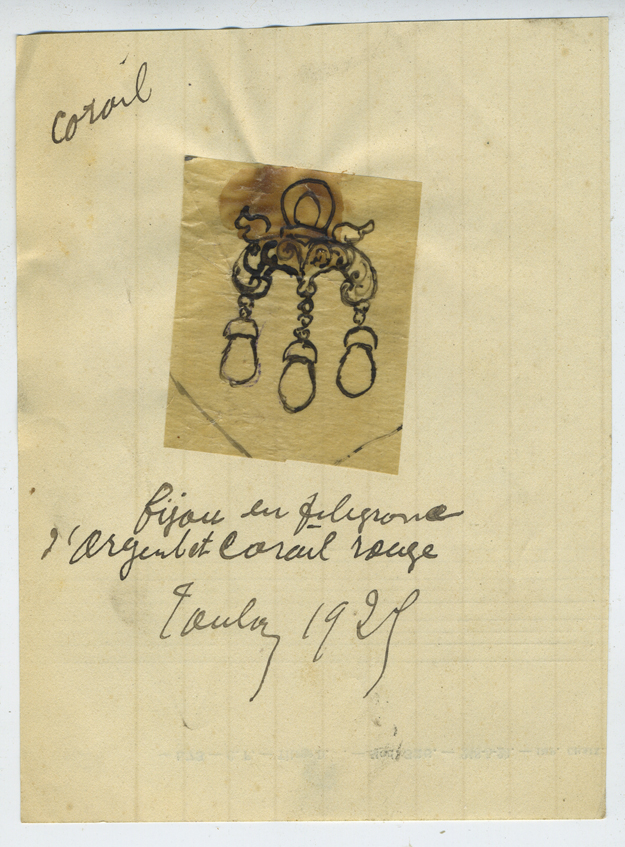 corail
bijou en filigrane
d'Argent et Corail rouge
Toulon 1925